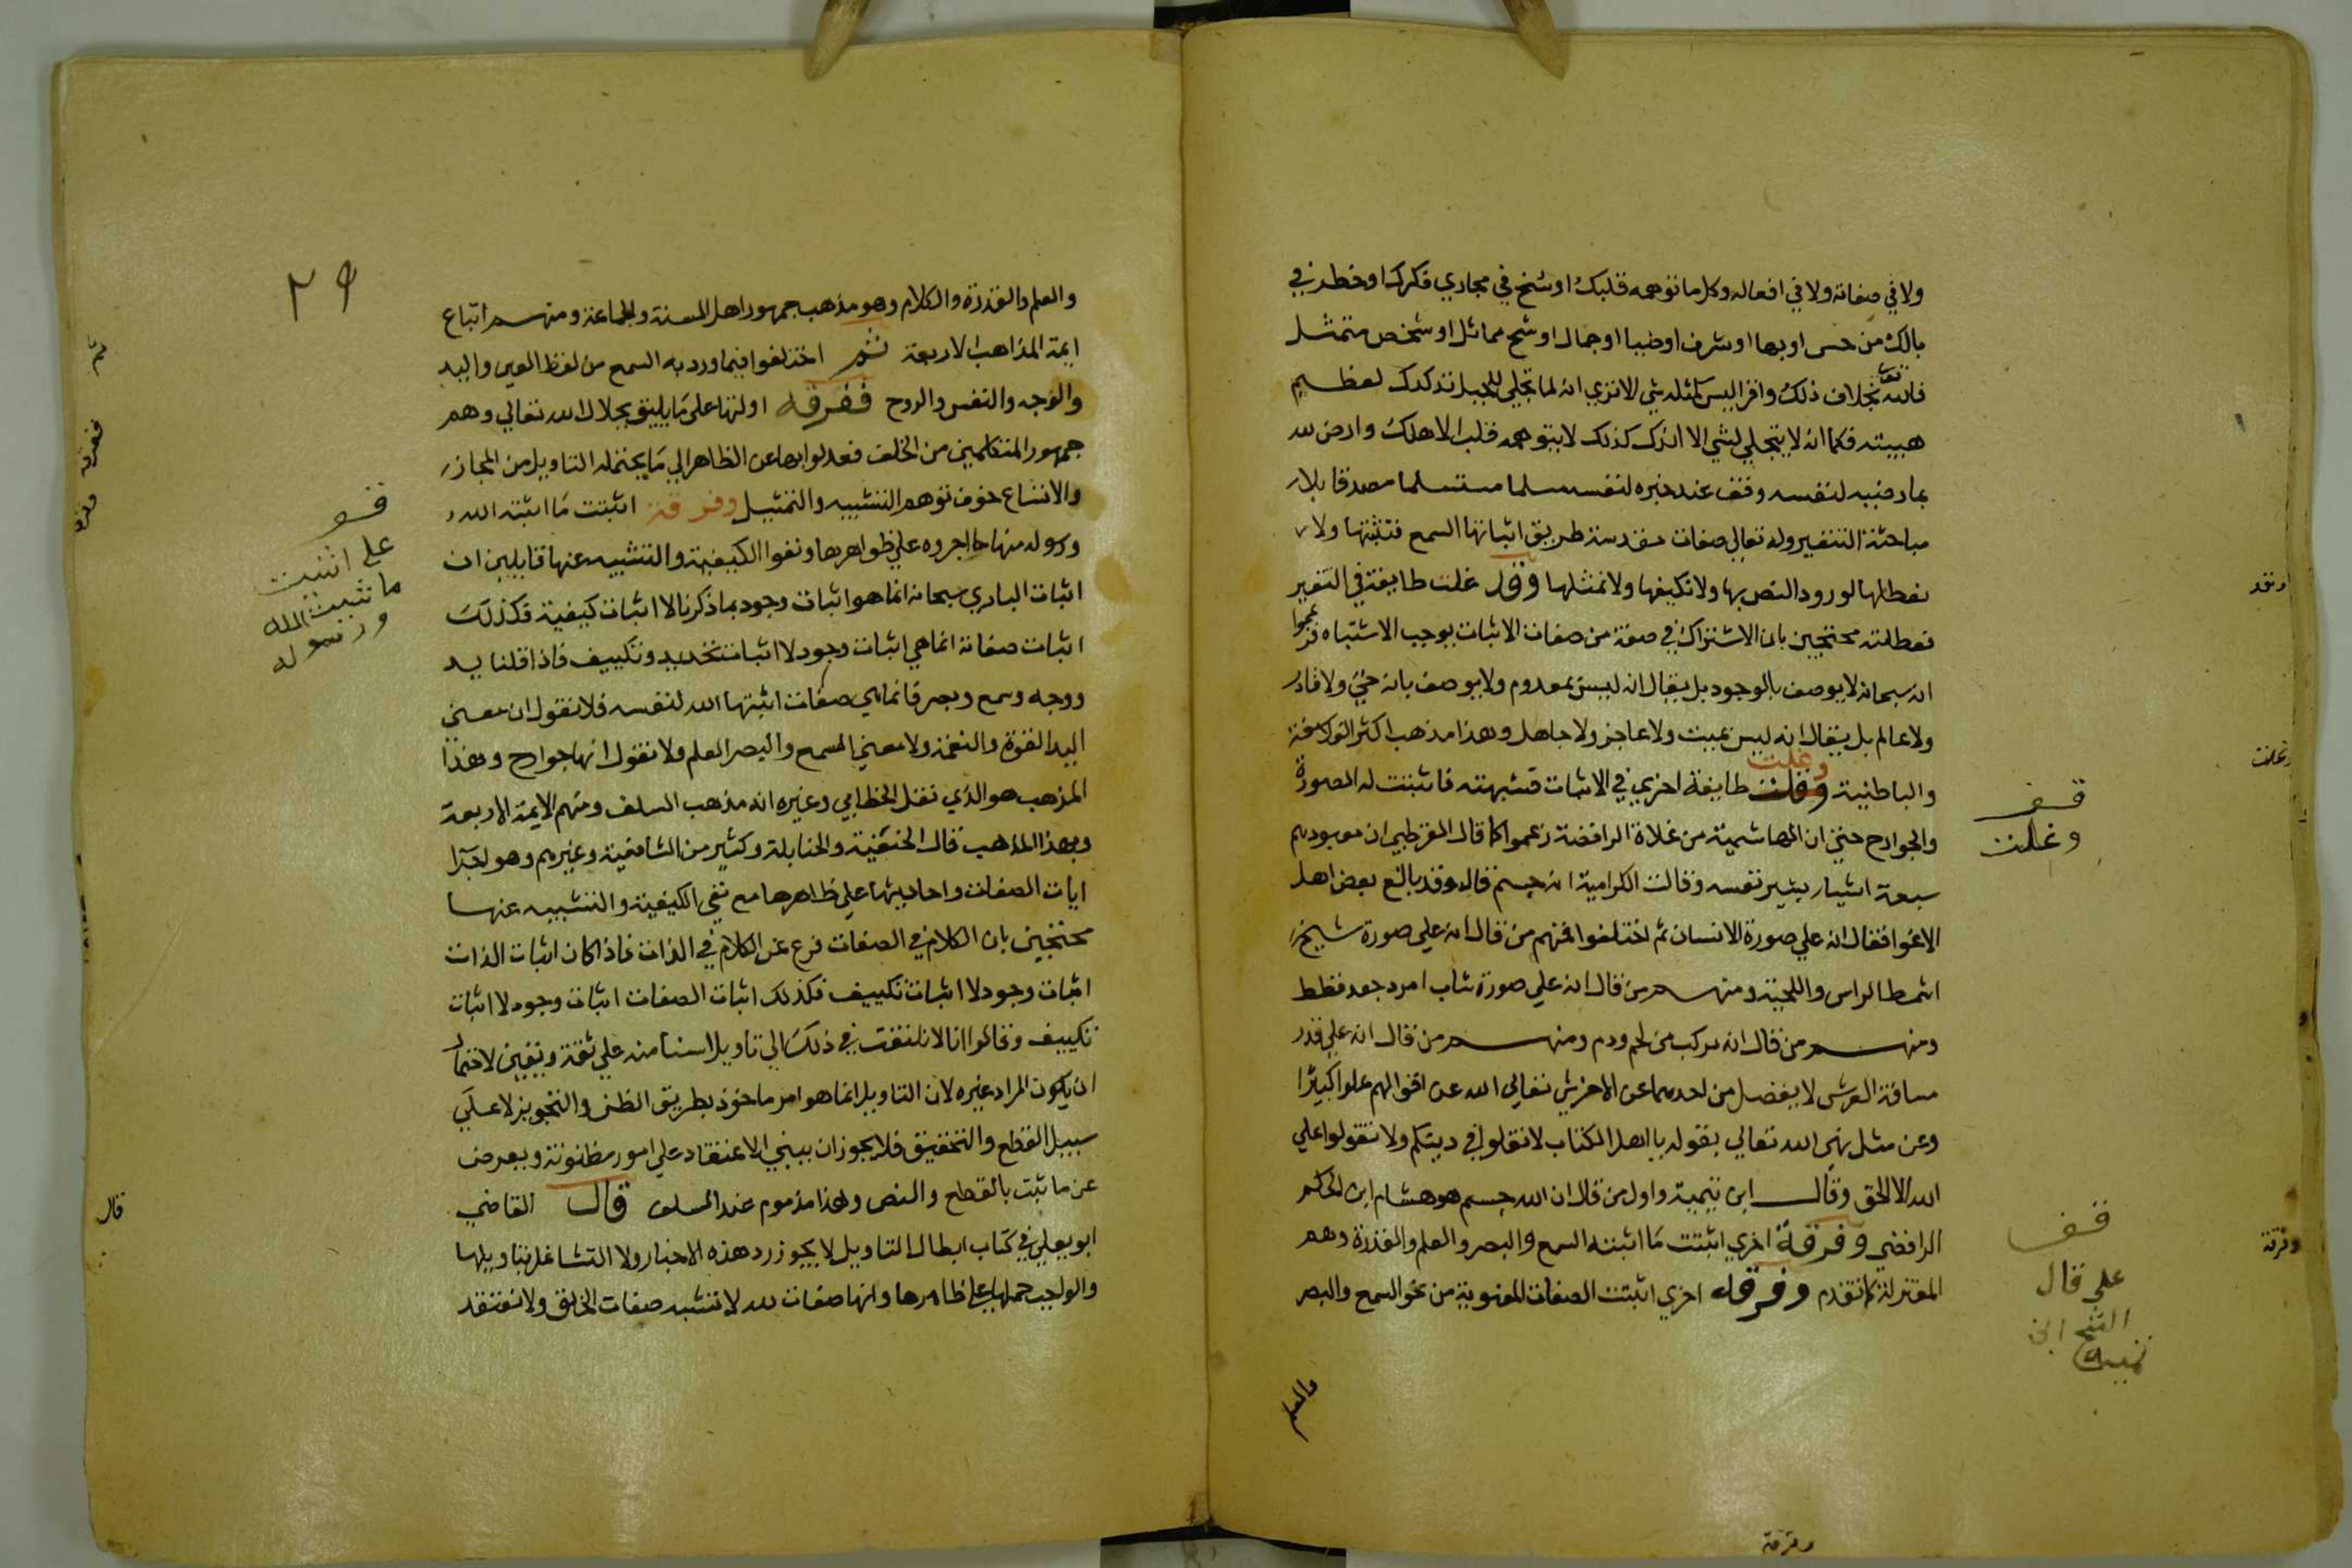 ولا في صفاته ولا في افعاله وكل ما توهمه قلبك او سنح في مجاري فكرك او خطر في
بالك من حسن او بها او شرف او ضيا او جمال او شبح مماثل او شخص متمثل
فالله تعالى بخلاف ذلك واقرا ليس كمثله شي الا تري انه لما تجلي للجبل تدكدك لعظيم
هيبته فكما انه لا يتجلي لشي الا اندك كذلك لا يتوهمه قلب الا هلك وارض لله
بما رضيه لنفسه وقف عند خبره لنفسه مسلما مستسلما مصدقا بلا
مباحثة التنفير وله تعالي صفات مقدسة طريق اثباتها السمع فنثبتها ولا
نعطلها لورود النص بها ولا نكيفها ولا نمثلها وقد غلت طايفة في النفي
فعطلته محتجين بان الاشتراك في صفة من صفات الاثبات يوجب الاشتباه فزعموا
انه سبحانه لا يوصف بالوجود بل يقال انه ليس بمعدوم ولا يوصف بانه حي ولا قادر
ولا عالم بل يقال انه ليس بميت ولا عاجز ولا جاهل وهذا مذهب اكثر الفلاسفة
والباطنية وغلت طايفة اخري في الاثبات فشبهته فاثبتت له الصورة
والجوارح حتي ان الهاشمية من غلاة الرافضة زعموا كما قال القرطبي ان معبودهم
سبعة اشبار بشبر نفسه وقالت الكرامية انه جسم قال وقد بالغ بعض اهل
الاغوا فقال انه علي صورة الانسان ثم اختلفوا فمنهم من قال انه علي صورة شيخ
اشمط الراس واللحية ومنهم من قال انه علي صورة شاب امرد جعد قطط
ومنهم من قال انه مركب من لحم ودم ومنهم من قال انه علي قدر
مسافة العرش لا يفضل من احدهما عن الاخر شي تعالي الله عن اقوالهم علوا كبيرا
وعن مثل نهي الله تعالي بقوله يا اهل الكتاب لا تغلوا في دينكم ولا تقولوا علي
الله الا الحق وقال ابن تيمية واول من قال ان الله جسم هو هشام ابن الحكم
الرافضي وفرقة اخري اثبتت ما اثبته السمع والبصر والعلم والقدرة وهم
المعتزلة كما تقدم وفرقة اخري اثبتت الصفات المعنوية من نحو السمع والبصر
والعلم
قف
وغلت
قف
علي قال
الشيخ ابن
تيمية
وقد
وغلت
وفرقة
وفرقة
٢٩
والعلم والقدرة والكلام وهو مذهب جمهور اهل السنة والجماعة ومنهم اتباع
ايمة المذاهب الاربعة ثم اختلفوا فيما ورد به السمع من لفظ العين واليد
والوجه والنفس والروح ففرقة اولتها علي ما يليق بجلال الله تعالي وهم
جمهور المتكلمين من الخلف فعدلوا بها عن الظاهر الي ما يحتمله التاويل من المجاز
والاتساع خوف توهم التشبيه والتمثيل وفرقة اثبتت ما اثبته الله
ورسوله منها واجروه علي ظواهرها ونفوا الكيفية والتشبيه عنها قايلين ان
اثبات الباري سبحانه انما هو اثبات وجود بما ذكرنا لا اثبات كيفية فكذلك
اثبات صفاته انما هي اثبات وجود لا اثبات تحديد وتكييف فاذا قلنا يد
ووجه وسمع وبصر فانما هي صفات اثبتها الله لنفسه فلا نقول ان معني
اليد القوة والنعمة ولا معني السمع والبصر العلم ولا نقول انها جوارح وهذا
المذهب هو الذي نقل الخطابي وغيره انه مذهب السلف ومنهم الايمة الاربعة
وبهذا المذهب قال الحنفية والحنابلة وكثير من الشافعية وغيرهم وهو اجرا
ايات الصفات واحاديثها علي ظاهرها مع نفي الكيفية والتشبيه عنها
محتجين بان الكلام في الصفات فرع عن الكلام في الذات فاذا كان اثبات الذات
اثبات وجود لا اثبات تكييف فكذلك اثبات الصفات اثبات وجود لا اثبات
تكييف وقالوا انا لا نلتفت في ذلك الي تاويل لسنا منه علي ثقة ويقين لاحتمال
ان يكون المراد غيره لان التاويل انما هو امر ماخوذ بطريق الظن والتجويز لا علي
سبيل القطع والتحقيق فلا يجوز ان يبني الاعتقاد علي امور مظنونة ويعرض
عن ما ثبت بالقطع والنص وهذا مذموم عند السلف قال القاضي
ابو يعلي في كتاب ابطال التاويل لا يجوز رد هذه الاخبار ولا التشاغل بتاويلها
والواجب حملها علي ظاهرها وانها صفات لله لا تشبه صفات الخلق ولا نعتقد
قف
علي اثبتت
ما ثبت الله
ورسوله
ثم
ففرقة
وفرقة
قال